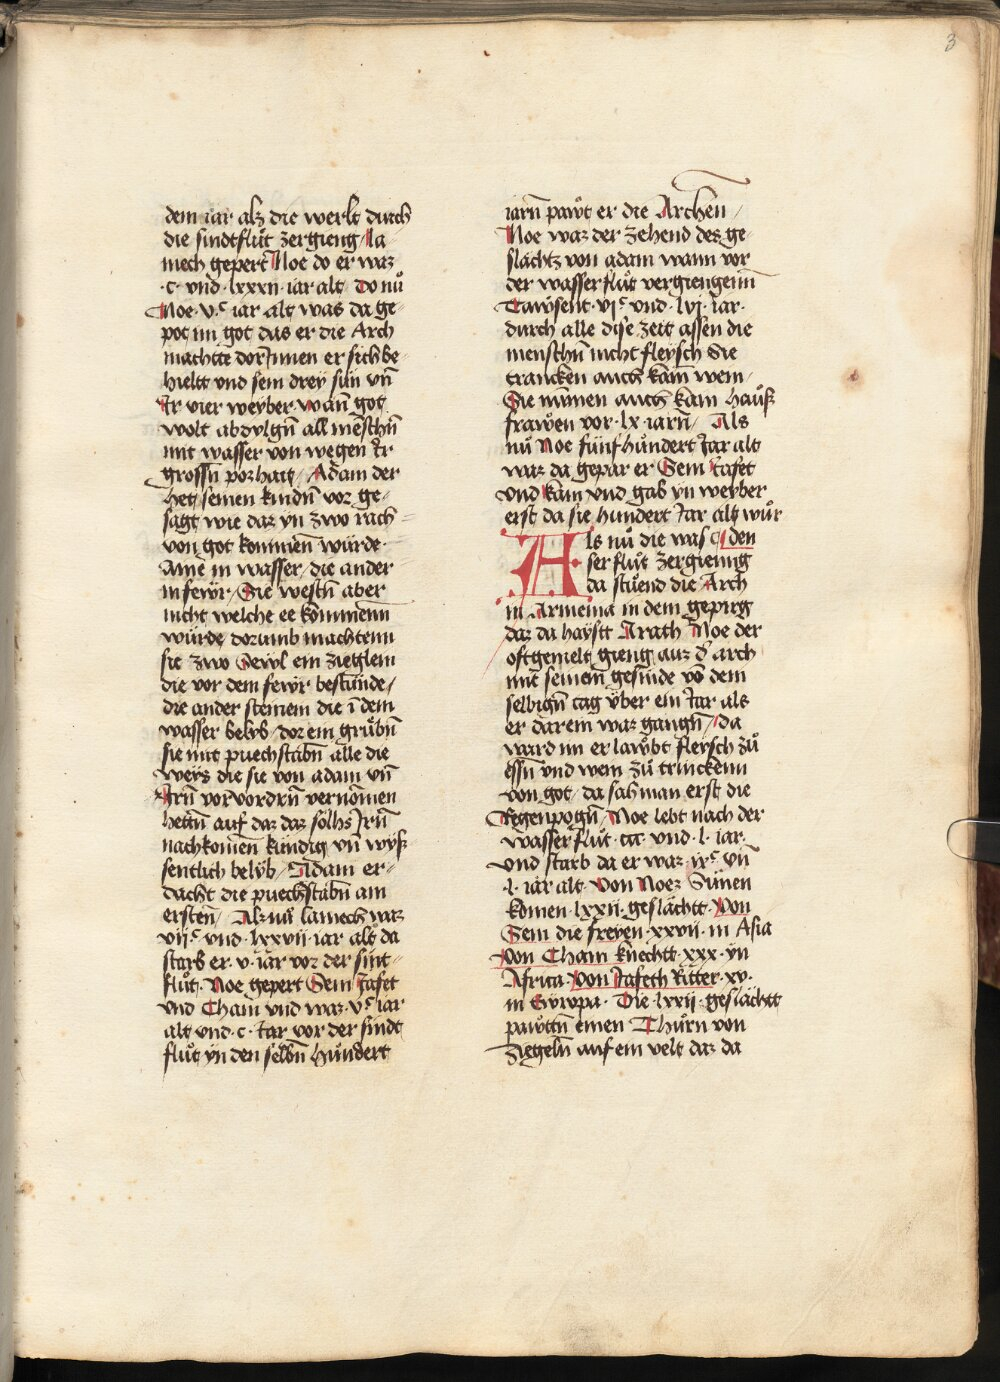 3
dem iar alz die werlt durch
die sindtflůt zergieng / la
mech gepert Noe do er waz
·c· vnd ·lxxxii· iar alt / Do nů
Noe ·v·ᶜ iar alt was da ge-
pot im got das er die Arch
machtte dorInnen er sich be-
hieltt vnd sein dreÿ sün vn̄
Ir vier weyber wān got
wolt abdylgn̄ all mēschn̄
mit wasser von wegen Ir
grossn̄ pozhait / Adam der
het seinen kindn̄ vor ge-
sagt wie daz yn zwo rach
von got kommen würde·
Aine in wasser / die ander
in fewr / Sie westn̄ aber
nicht welche ee kōmmenn
würde / dorumb machtenn
sie zwo Sewl ein zieglein
die vor dem fewr bestünde /
die ander steinein die ī dem
wasser belyb / dor ein grůbn̄
sie mit puechstabn̄ alle die
weys die sie von adam vn̄
Irn̄ vorvordrn̄ vernōmen
hettn̄ auf daz daz sölhs Irn̄
nachkomēn kündig vn̄ wyß
sentlich belyb / Adam er-
dacht die puechstabn̄ am
ersten / Alz nů lamech waz
vijᶜ vnd ·lxxvii· iar alt da
starb er ·v· iar vor der sint-
flůt· Noe gepert Sem Iafet
vnd Cham vnd waz ·vᶜ iar
alt vnd ·c· Iar vor der sindt
flůt yn den selbn̄ hůndert
iarn̄ pawt er die Archen /
Noe waz der zehend des ge
slächtz von adam wann vor
der wasserflůt vergiengenn
Tawsent ·vjᶜ vnd ·lvj· iar·
durch alle dise zeit assen die
menschn̄ nicht fleysch Sie
trancken auch kain wein /
Sie nūmen auch kain hauß
frawen vor ·lx· iarn̄ / Als
nů Noe fünfhůndert Iar alt
waz da gepar er Sem Iafet
vnd kām vnd gab yn weyber
erst da sie hundert Iar alt wůr
Als nů die was¶den
serflůt zergienng
da stůend die Arch
in Armenia in dem gepirg
daz da haystt Arath Noe der
oftgenielt gieng auz d' arch
mit seinem gesinde vō dem
selbign̄ tag vber ein Iar als
er darein waz gangn̄ / da
ward im erlawbt fleysch zů
essn̄ vnd wein zů trinckenn
von got / da sah man erst die
Regenpogn̄ / Noe lebt nach der
wasserflůt ·ccc· vnd ·l· iar·
vnd starb da er waz ·ixᶜ vn̄
·l· iar alt· Von Noez Sünen
komen ·lxxii· geslächtt· Von
Sem die freyen ·xxvii· in Asia
Von Cham knechtt ·xxx· yn
Africa· Von Jafeth Ritter ·xv·
in Ewropa· Die ·lxxii· geslächtt
pawttn̄ einen Thůrn von
ziegeln̄ auf ein velt daz da